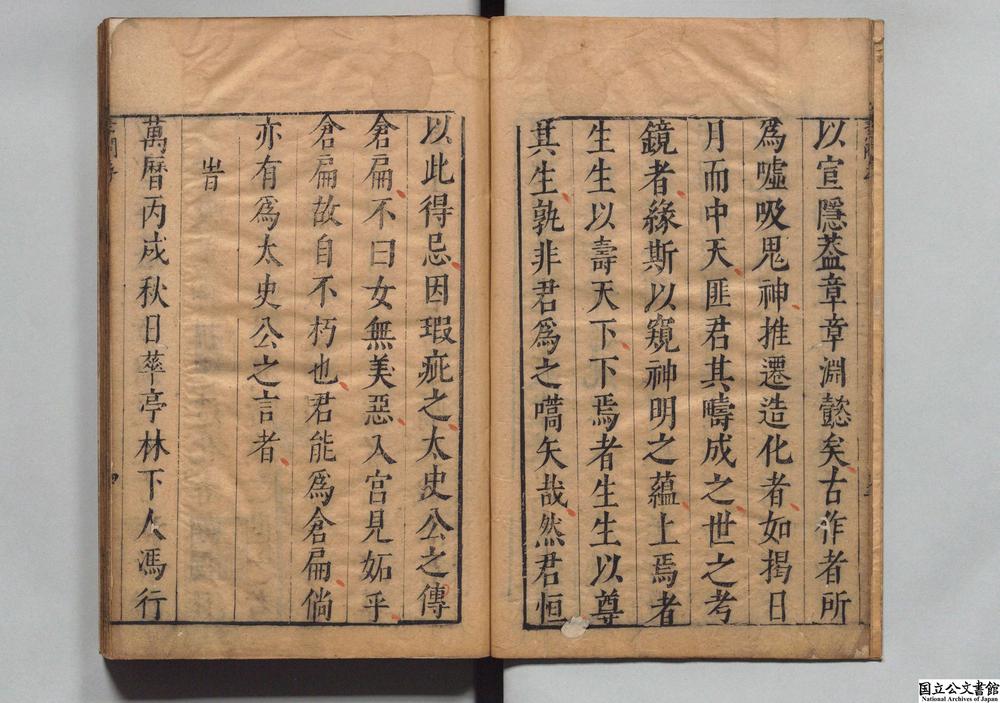 以宣隱葢章章淵懿矣古作者所
爲噓吸鬼神推遷造化者如揭日
月而中天匪君其疇成之世之考
鏡者緣斯以窺神明之蘊上焉者
生生以壽天下下焉者生生以尊
其生孰非君爲之嚆矢哉然君恒
以此得忌因瑕疵之太史公之傳
倉扁不曰女無美惡入宮見妬乎
倉扁故自不朽也君能爲倉扁倘
亦有爲太史公之言者
旹
萬曆丙戌秋日華亭林下人馮行
国立公文書館
National Archives of Japan